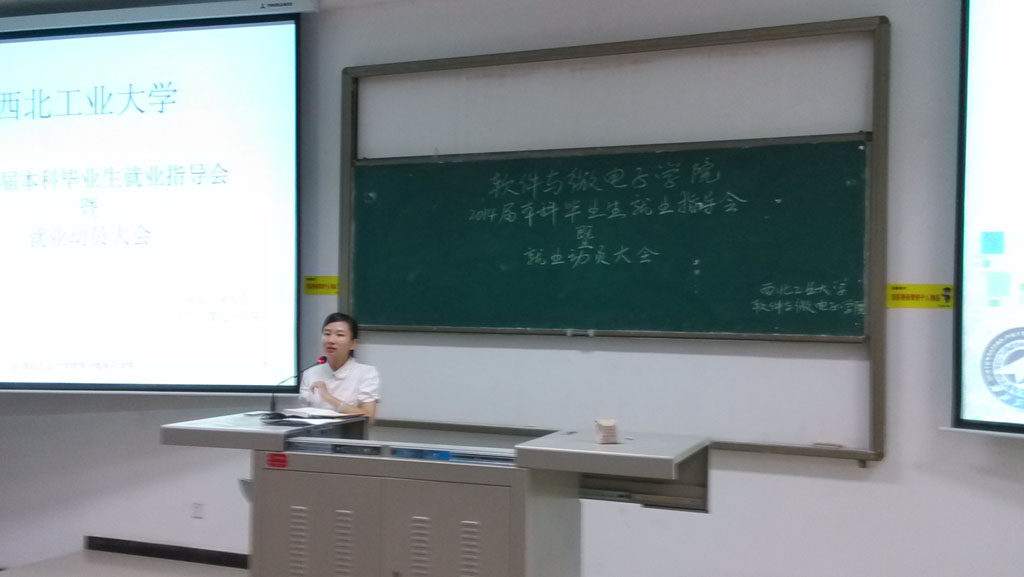 西北工业大学
届本科毕业生就业指导会
暨
就业动员大会
软件与微电子学院
2014届本科毕业生就业指导会
暨
就业动员大会
西北工业大学
软件与微电子学院